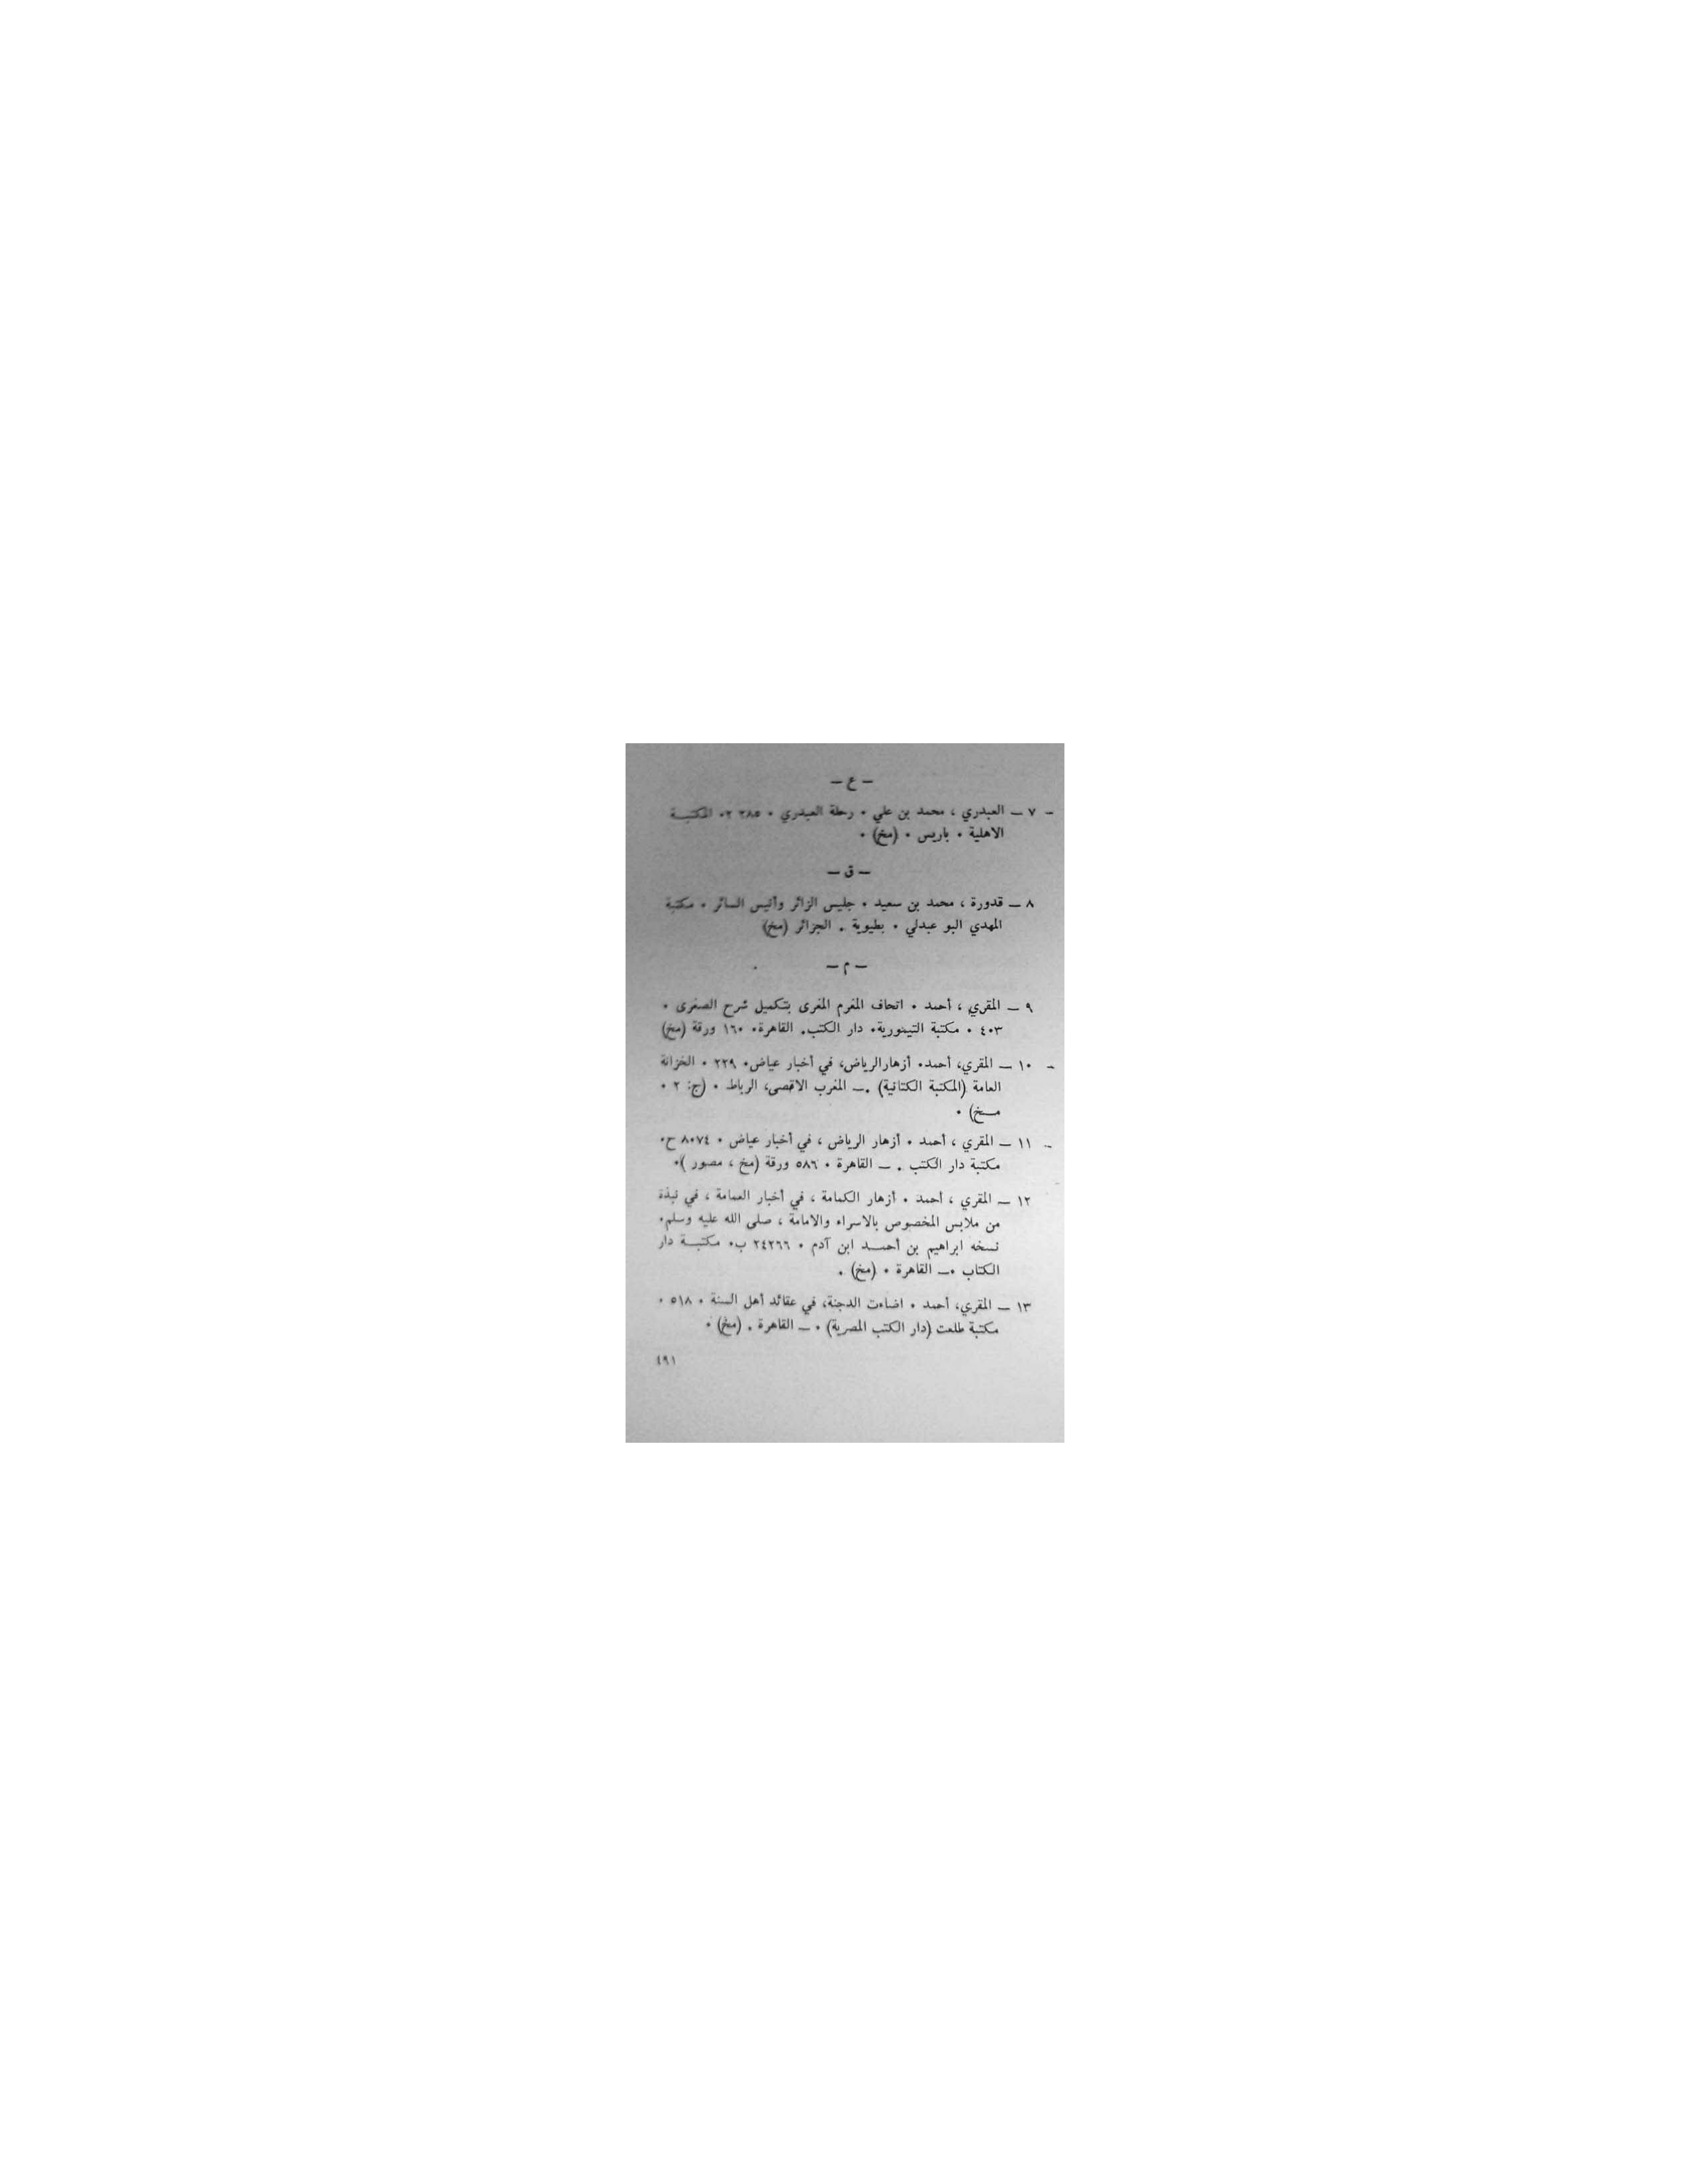 — ع —
٧ — العبدري ، محمد بن علي ٠ رحلة العبدري ٠ ٢٢٨٥ ٢٠ المكتبـة
الاهلية ٠ باريس ٠ (مخ) ٠
— ق —
٨ — قدورة ، محمد بن سعيد ٠ جليس الزائر وأنيس السائر ٠ مكتبة
المهدي البو عبدلي ٠ بطيوية . الجزائر (مخ)
— م —
٩ — المقري ، أحمد ٠ اتحاف المغرم المغرى بتكميل شرح الصغرى ٠
٤٠٣ ٠ مكتبة التيمورية٠ دار الكتب. القاهرة٠ ١٦٠ ورقة (مخ)
١٠ — المقري، أحمد٠ أزهارالرياض، في أخبار عياض٠ ٢٢٩ ٠ الخزانة
العامة (المكتبة الكتانية) .— المغرب الاقصى، الرباط ٠ (ج: ٢ ٠
مـخ) ٠
١١ — المقري ، أحمد ٠ أزهار الرياض ، في أخبار عياض ٠ ٨٠٧٤ ح٠
مكتبة دار الكتب . — القاهرة ٠ ٥٨٦ ورقة (مخ ، مصور )٠
١٢ — المقري ، أحمد ٠ أزهار الكمامة ، في أخبار العمامة ، في نبذة
من ملابس المخصوص بالاسراء والامامة ، صلى الله عليه وسلم٠
نسخه ابراهيم بن أحمـد ابن آدم ٠ ٢٤٢٦٦ ب٠ مكتبـة دار
الكتاب ٠— القاهرة ٠ (مخ) .
١٣ — المقري، أحمد ٠ اضاءت الدجنة، في عقائد أهل السنة ٠ ٥١٨ ٠
مكتبة طلعت (دار الكتب المصرية) ٠ — القاهرة . (مخ) ٠
٤٩١